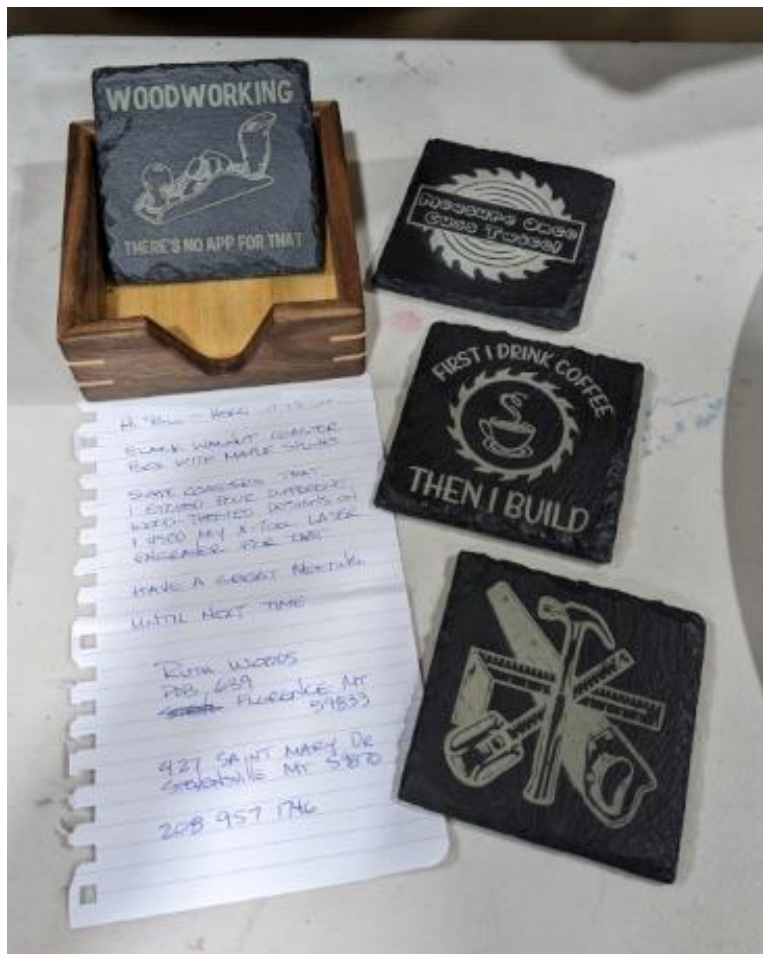 WOODWORKING
THERE'S NO APP FOR THAT
Measure Once
Cuss Twice!
FIRST I DRINK COFFEE
THEN I BUILD
BLACK WALNUT COASTER
BOX WITH MAPLE SPLINES
SLATE COASTERS THAT
I ETCHED FOUR DIFFERENT
WOOD-THEMED DESIGNS ON
I USED MY X-TOOL LASER
ENGRAVER FOR THAT
HAVE A GREAT MEETING.
UNTIL NEXT TIME
RUTH WOODS
POB 639
FLORENCE MT
59833
427 SAINT MARY DR
STEVENSVILLE MT 59870
208 957 1746